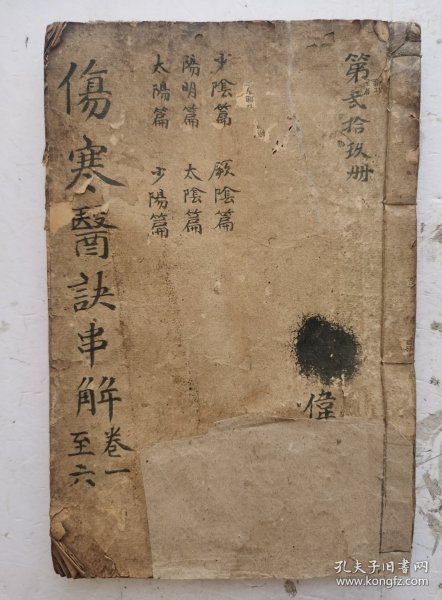 第贰拾玖册
少陰篇 厥陰篇
陽明篇 太陰篇
太陽篇 少陽篇
傷寒醫訣串解
卷一
至六
偉
孔夫子旧书网
www.kongfz.com